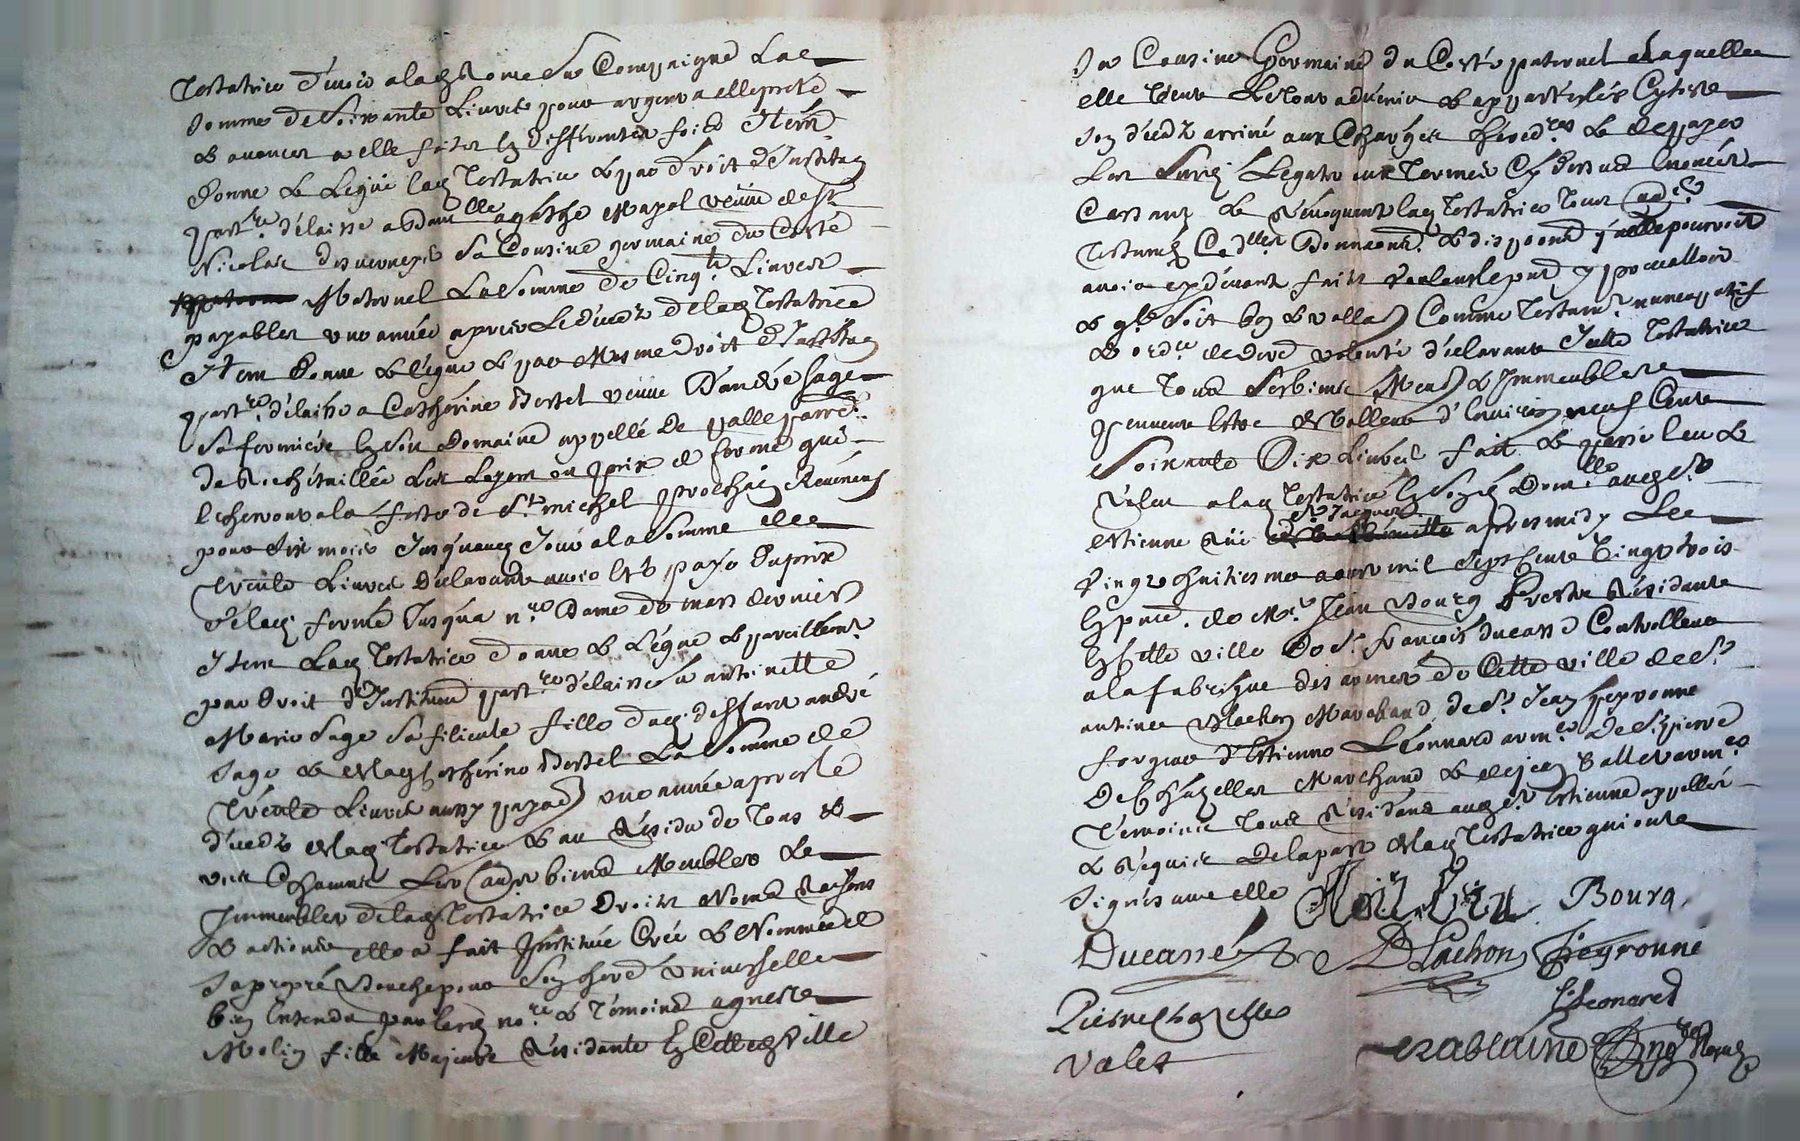 Testatrice d'avoir a lad. Rome sa Compaigne La
somme de Soixante Livres pour argent a elle preté
& avancer a elle faites En differentes fois Item
Donne & Legue lad. Testatrice & par droit d'Institu[on]
part.re délaisse a Dam.lle agathe Mazal veuve de S.r
Nicolas desvergnes Sa Cousine germaine du Costé
Maternel La Somme de Cinq.te Livres
payables une année apres Le décedz de lad. Testatrice
Item Donne & légue & par Mesme Droit d'Institu[on]
part.re délaisse a Catherine Bestel veuve D'andré sage
Sa fermiere En Son Domaine appellé De
de Les Loyers ou prix de ferme qui
Echerront a la feste de S.t michel prochain Revenens
pour Six mois Jusques a la Somme de
trente Livres déclarante avoir Esté payé Du prix
de lad. ferme Jusqu'a n.re Dame de mars dernier
Item Lad. Testatrice donne & Légue & pareillem.t
par Droit d'Institu[on] part.re délaisse a antoinette
Marie Sage Sa filieule fille dud. deffunt andré
Sage & de lad. Catherine Bestel La Somme de
trente Livres aussy payab. une année apres le
décedz de lad. Testatrice & au Résidu de Tous &
uns Chacuns Les autres biens Meubles &
Immeubles de lad. Testatrice Droits Noms Raisons
& actions elle a fait Institué Créé & Nommée de
Sa propre Bouche pour Son hered. universelle
bien Entendu par led. no.re & témoins agnesse
Molin fille Majeure Résidante En Cette d. Ville
Sa Cousine Germaine du Costé paternel a Laquelle
elle veut Le tout advenir & appartenir Cytost
Son décedz arrivé aux Charges héred.res & de payer
Les Susd. Legats aux Termes Cy dessus Enoncés
Cassant & Révoquant lad. Testatrice tous
Testamens Codicilles Donnaons & disposions qu'elle pourroit
avoir cy devant faits voulant le présent y prevalloir
& q.le Soit bon & vallab. Comme Testam.t nuncupatif
& ord.ce de Dere volonté déclarante Icelle Testatrice
que tous Ses biens Meub. & Immeubles
peuvent Estre de valleur d'Environ neuf Cents
Soixante Dix Livres fait & passé leu &
relu a lad. Testatrice En Son Dom.lle aud. S.t
Estienne Rüe S.t Jacques apres midy Le
vingt huitiesme aoust mil Sept Cents vingt trois
En pnce. de M.re Jean Bourg Prestre Résidante
En Cette ville De S.r francois ducassé Controlleur
a la fabrique des armes de Cette ville de S.r
antoine Blachon Marchand de S.r Jean peyronne
forgeur d'Estienne Léonnard arm.er De S.r pierre
De Chazelles Marchand & de Jean Vallet arm.er
témoins tous Résidans aud. S.t Estienne appellés
& Réquis de la part de lad. Testatrice qui ont
Signés avec elle
Bourg
Ducassé Blachon Peyronné
E. Leonard
Pierre Chazelles
Valet